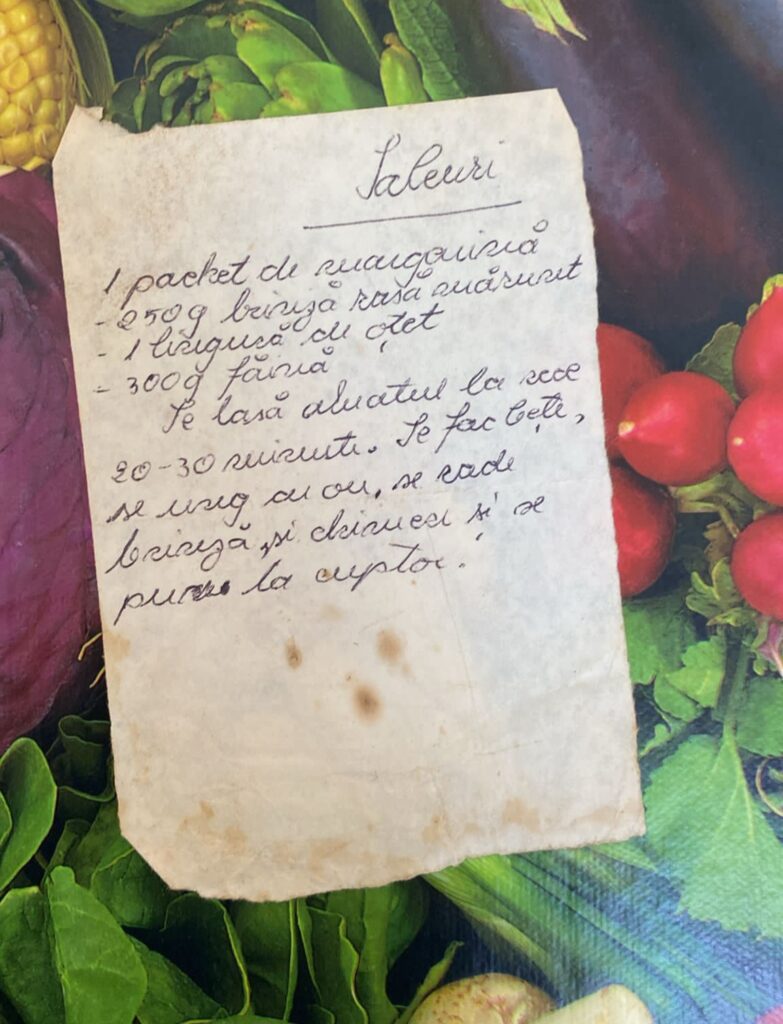 Saleuri
1 pachet de margarină
- 250g brînză rasă mărunt
- 1 lingură cu oțet
- 300g făină
Se lasă aluatul la rece
20-30 minute. Se fac bețe,
se ung cu ou, se rade
brînză, și chimen și se
pune la cuptor.